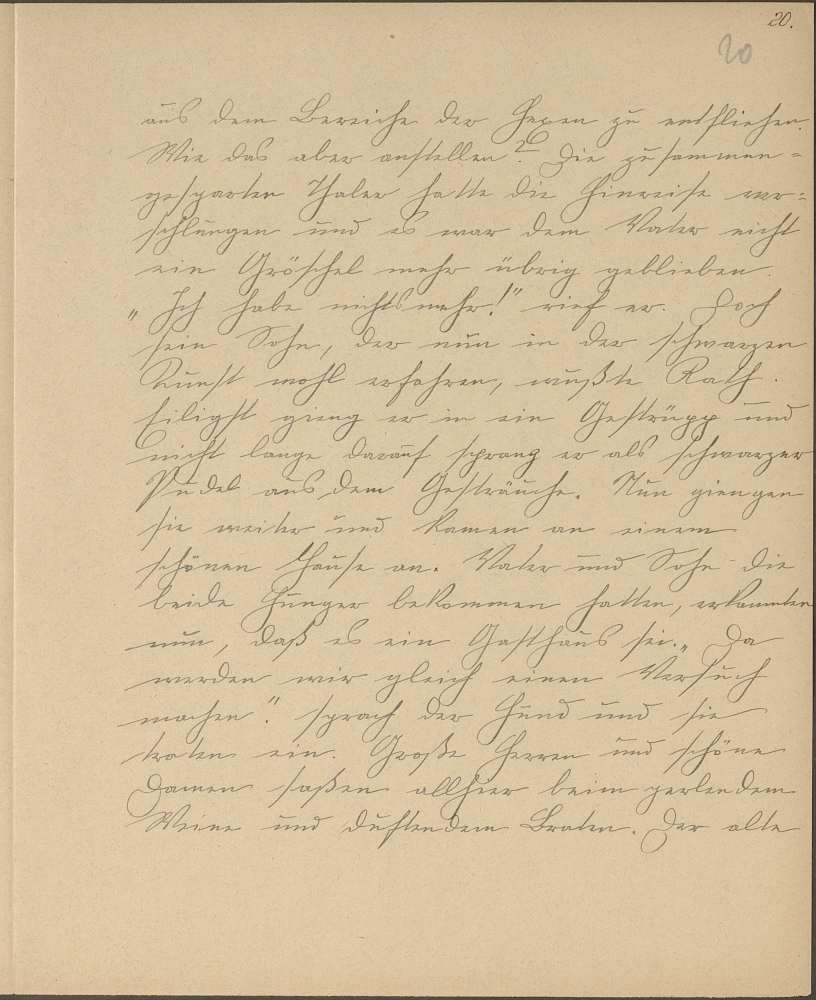 20.
20
aus dem Bereiche der Hexen zu entfliehen.
Wie das aber anstellen? Die zusammen-
gesparten Thaler hatte die Hinreise ver-
schlungen und es war dem Vater nicht
ein Gröschel mehr übrig geblieben.
„Ich habe nichts mehr!" rief er. Doch
sein Sohn, der nun in der schwarzen
Kunst wohl erfahren, wußte Rath.
Eiligst gieng er in ein Gestrüpp und
nicht lange darauf sprang er als schwarzer
Pudel aus dem Gesträuche. Nun giengen
sie weiter und kamen an einem
schönen Hause an. Vater und Sohn die
beide Hunger bekommen hatten, erkannten
nun, daß es ein Gasthaus sei. „Da
werden wir gleich einen Versuch
machen". sprach der Hund und sie
traten ein. Große Herren und schöne
Damen saßen allhier beim perlendem
Weine und duftendem Braten. Der alte